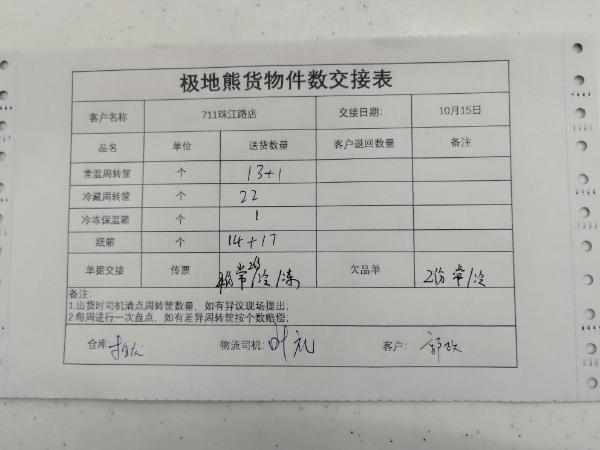 极地熊货物件数交接表
客户名称 711珠江路店 交接日期: 10月15日
品名 单位 送货数量 客户退回数量 备注
常温周转筐 个 13+1
冷藏周转筐 个 22
冷冻保温箱 个 1
纸箱 个 14+17
单据交接 传票 常/冷/冻 欠品单 2份 常/冷
备注:
1.出货时司机清点周转筐数量,如有异议现场提出;
2.每周进行一次盘点,如有差异周转筐按个数赔偿;
仓库: 物流司机: 客户: